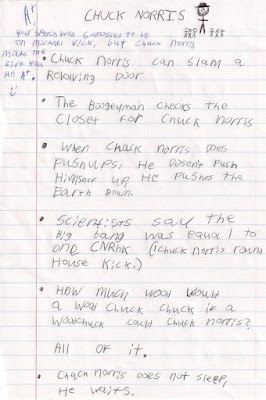 A+
CHUCK NORRIS
Your speech was supposed to be
on Michael Vick, but Chuck Norris
made me
give you
An A+.
• Chuck Norris can slam a
Revolving Door.
• The Boogeyman checks the
Closet for Chuck Norris
• When Chuck Norris does
pushups, He Dosent Push
Himself up, He pushes the
Earth Down.
• Scientists say the
Big bang was equal to
one CNRHK (1 Chuck Norris round
House Kick.)
• How much wood would
a wood chuck chuck if a
Woodchuck could Chuck Norris?
All of it.
• Chuck Norris does not sleep,
He waits.